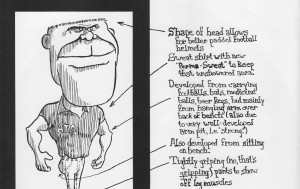 Shape of head allows
for better padded football
helmets
Sweat shirt with new
"Perma-Sweat" to keep
that unshowered aura.
Developed from carrying
footballs, bats, medicine
balls, beer kegs, but mainly
from hanging arm over
back of bench (also due
to very well-developed
arm pit, i.e. "strong")
Also developed from sitting
on bench.
Tightly griping (no, that's
gripping) pants to show
off leg muscles